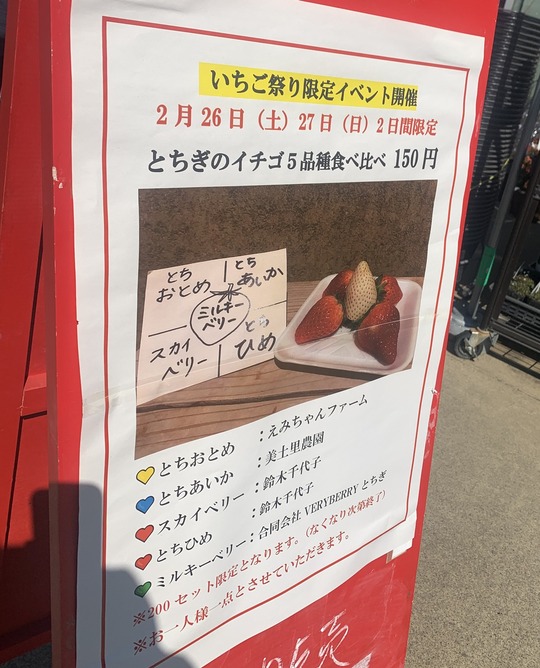 いちご祭り限定イベント開催
2月26日（土）27日（日）2日間限定
とちぎのイチゴ5品種食べ比べ 150円
とち
おとめ
とち
あいか
ミルキー
ベリー
スカイ
ベリー
とち
ひめ
とちおとめ ：えみちゃんファーム
とちあいか ：美土里農園
スカイベリー ：鈴木千代子
とちひめ ：鈴木千代子
ミルキーベリー：合同会社VERYBERRYとちぎ
※200セット限定となります。（なくなり次第終了）
※お一人様一点とさせていただきます。